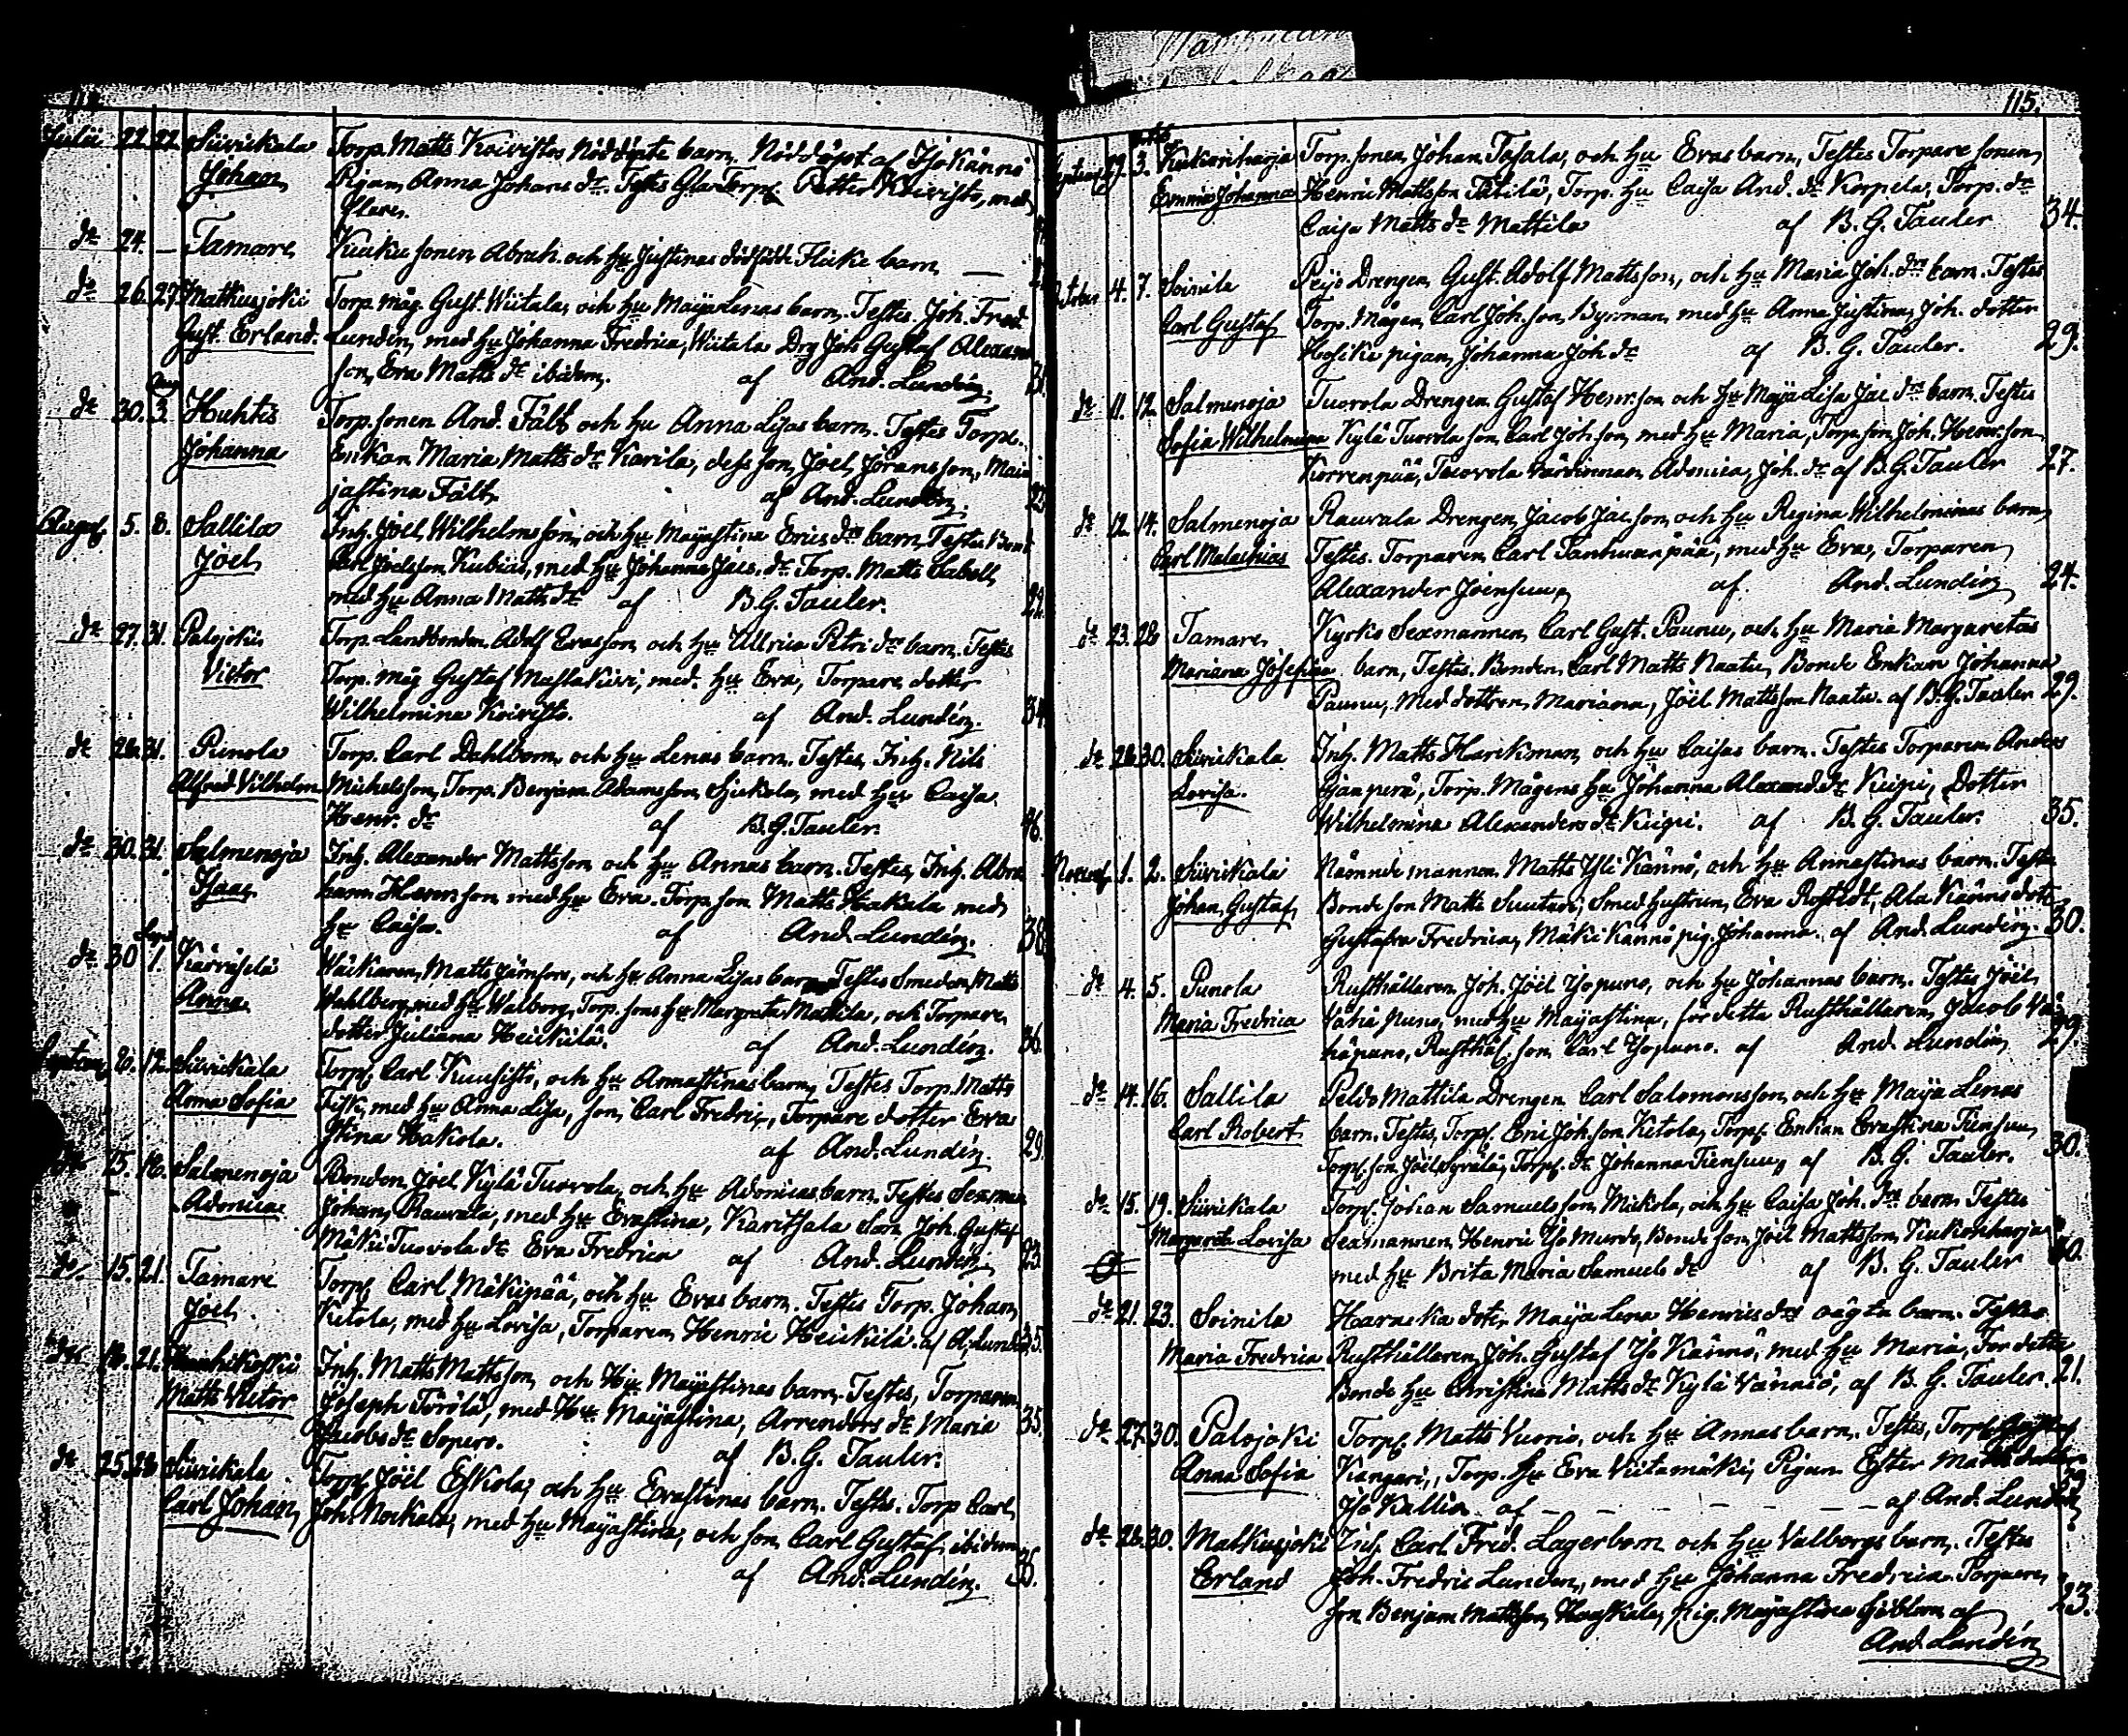 114.
Julii 22. 22. Siivickala Torp. Matts Koivistos Nöddöpte barn. Nöddöpt af Isokännö
Johan Pigan, Anna Johans dr. Testes Torp. Petter Koivisto, med
flere.
dr 24. — Tamare Abrah. och hu Justinas dödfödde Flicke barn —
dr 26. 27. Matkusjoki Torp. måg Gust. Wiitala, och hu Maija Lenas barn. Testes. Joh. Fred.
Gust. Erland. Lundén, med hu Johanna Fredrica, Wiitala Drg Joh Gustaf
son, Eva Matts dr ibidem. af And. Lundén. 31.
dr 30. Aug 3. Huhtis Torp. sonen And. Fält och hu Anna Lisas barn. Testes Torp.
Johanna Enkan Maria Matts dr Karila, dess son, Joel, Göransson, Maia
justina Fält. af And. Lundén.
August. 5. 8. Sallila Inh. Joel Wilhelmsson, och hu Majastina Erics drs barn, Testes
Joel Joelsson, med hu Johanna Jacs. dr Torp. Matts Cabell,
med hu Anna Matts dr af B. G. Tauler. 22.
dr 27. 31. Palojoki Torp. Landbonden Adolf Ersson och hu Ullrica Petri drs barn. Testes
Victor Torp. måg Gustaf, med hu Eva, Torpare dotter
Wilhelmina Koivisto. af And. Lundén. 34.
dr 28. 31. Punola Torp. Carl Dahlbom, och hu Lenas barn. Testes, Inh. Nils
Alfred Vilhelm Michelsson, Torp. Benjam. Adamsson, med hu Caisa
Henr. dr af B. G. Tauler. 46.
dr 30. 31. Salmenoja Inh. Alexander Mattsson och hu Annas barn. Testes, Inh. Abra
Isaac ham Henrsson med hu Eva. Torp. son Matts Hakala med
hu Caisa. af And. Lundén. 38.
dr 30 Sept 1. Matts, och hu Anna Lisas barn Testes Smeden Matts
Anna Wahlberg, med hu Walborg, Torp. sons hu Margreta Mattila, och Torpare
dotter Juliana Heickilä. af And. Lundén. 36.
Septem. 8. 12. Siivickala Torp. Carl Kuusisto, och hu Annastinas barn, Testes Torp. Matts
Anna Sofia Fisk, med hu Anna Lisa, son, Carl Fredric, Torpare dotter Eva
Stina Hakola. af And. Lundén. 29.
15. 16. Salmenoja Bonden Joel Kylä Tuovola, och hu Adonicas barn. Testes Sexman
Adonica Johan, Rauvala, med hu Evastina, Karitsala Son Joh. Gustaf
Mäki Tuovola dr Eva Fredrica af And. Lundén. 23.
do. 15. 21. Tamare Torp. Carl Mäkipää, och hu Evas barn. Testes Torp. Johan
Joel Kitola, med hu Lovisa, Torparen Henric Heickilä. af A. Lundén 35.
18. 21. Inh. Matts Mattsson, och Hu Majastinas barn, Testes, Torparen
Matts Victor Joseph Törölä, med Hu Majastina, Arrendors dr Maria
Jacobs dr Sopero. af B. G. Tauler. 35.
dr 25. 28 Siivickala Torp. Joel Eskola, och hu Evastinas barn. Testes. Torp Carl
Carl Johan Joh. Nockala, med hu Majastina, och son Carl Gustaf ibidem
af And. Lundén. 35.
115.
29. 3. Kiukonharja Torp. sonen Johan Tasala, och hu Evas barn, Testes Torpare sonen
Emma Johanna Henric Mattsson Tätilä, Torp. hu Caisa And. dr Korpela, Torp. dr
Caisa Matts dr Mattila af B. G. Tauler 34.
October 4. 7. Soinila Peijo Drengen Gust. Adolf Mattsson, och hu Maria Joh. drs barn. Testes
Carl Gustaf Torp. Mågen Carl Joh.son Byrman, med hu Anna Justina, Joh. dotter
pigan, Johanna Joh. dr af B. G. Tauler. 29.
dr 11. 12. Salmenoja Tuovola Drengen Gustaf Henr.son och hu Maja Lisa Jac. drs barn. Testes
Sofia Wilhelmina Kylä Tuovola son Carl Joh.son, med hu Maria, Torp. son Joh. Henr.son
Korrenpää, Tuovola värdinnan Adonica, Joh. dr af B. G. Tauler 27.
dr 12. 14. Salmenoja Rauvala Drengen Jacob Jacsson och hu Regina Wilhelminas barn,
Carl Malachias Testes. Torparen Carl Tanhuanpää, med hu Eva, Torparen
Alexander Joensuu af And. Lundén 24.
dr 23. 28 Tamare Kyrko Sexmannen Carl Gust. Paunu, och hu Maria Margaretas
Mariana Josefina barn, Testes. Bonden Carl Matts Naatu, Bonde Enkan Johanna
Paunu, med dottren, Mariana, Joël Mattsson Naatu. af B. G. Tauler 29.
dr 28. 30. Siivickala Inh. Matts Harckman, och hu Caisas barn. Testes Torparen Anders
Lovisa. Ojanperä, Torp. Mågens hu Johanna Alexand. dr Kiipi, Dotter
Wilhelmina Alexanders dr Kiipi. af B. G. Tauler. 35.
Novemb. 1. 2. Siivickala Nämndemannen Matts Yli Kännö, och hu Annastinas barn. Testes
Johan Gustaf Bonde son Matts Suutari, Smed hustrun, Eva Rostedt, Ala Kännö dott.
Gustafva Fredrica, Mäki Kännö pig. Johanna. af And. Lundén. 30.
dr 4. 5. Punola Rusthållaren Joh. Joël Isopuno, och hu Johannas barn. Testes Joël
Maria Fredrica Vähä Puno, med hu Majastina, för detta Rusthållaren, Jacob Vä
häpuno, Rusthål. son Carl Isopuno. af And. Lundén 29.
dr 14. 16. Sallila Peldo Mattila Drengen Carl Salomonsson och hu Maija Lenas
Carl Robert barn. Testes, Torp. Eric Joh.son Kitola, Torp. Enkan Evastina Tiensuu,
Torp. son Joël Syrälä, Torp. dr Johanna Tiensuu, af B. G. Tauler. 30.
dr 15. 19. Siivickala Torp. Johan Samuelsson Mickola, och hu Caisa Joh. drs barn Testes
Margareta Lovisa Sexmannen Henric Iso Murdo, Bonde son Joël Mattsson, Kiukonharja
med hu Brita Maria Samuels dr af B. G. Tauler 40.
dr 21. 23. Soinila Haracka doter, Maija Lena Henrics drs oägta barn. Testes
Maria Fredrica Rusthållaren, Joh. Gustaf Iso Kännö, med hu Maria, För detta
Bonde hu Christina Matts dr Kylä Vännöö, af B. G. Tauler. 21.
dr 27. 30. Palojoki Torp. Matts Vuorio, och hu Annas barn. Testes, Torp.
Anna Sofia Kangari, Torp. hu Eva Viitamäki, Pigan Ester Matts dotter
Iso Kallia af — — — — af And. Lundén
dr 28. 30. Matkusjoki Inh. Carl Fred. Lagerbom och hu Valborgs barn. Testes
Erland Joh. Fredric Lundén, med hu Johanna Fredrica. Torpare
son Benjam Mattsson Haaskala, pig. Majastina Sjöblom af
And. Lundén 23.